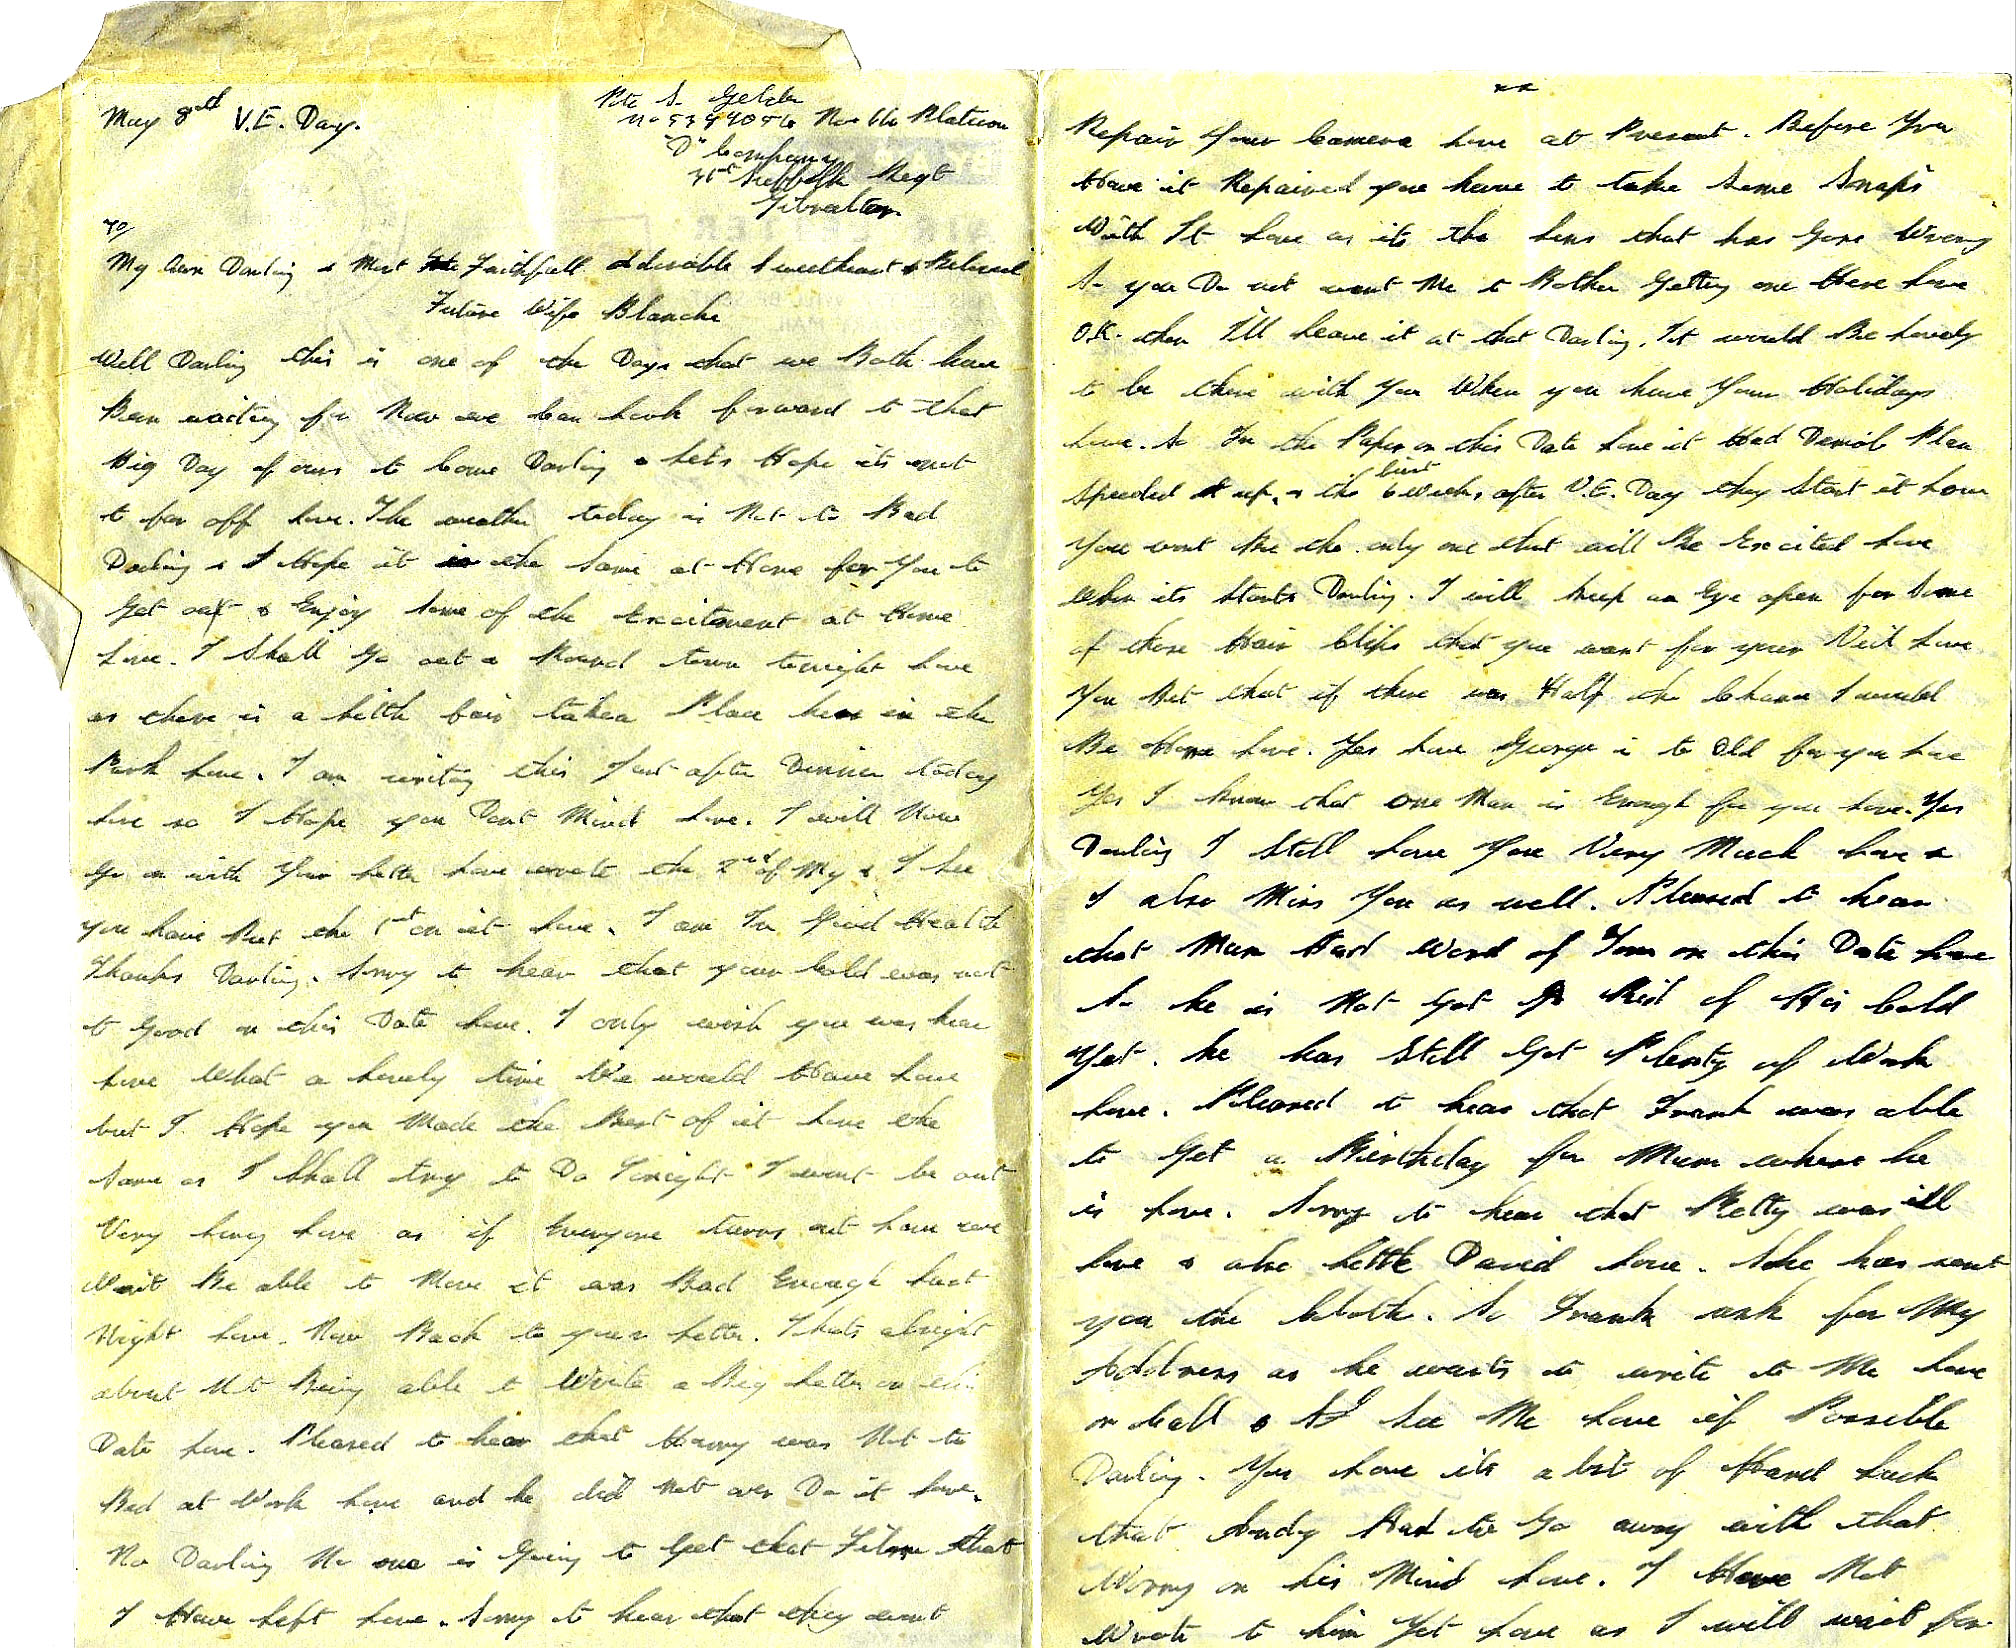 May 8th V.E. Day.
Pte S. Gelder
No 6 Platoon
"D" Company
31st Suffolk Regt
Gibraltar
To
My Own Darling & Most Faithfull Adorable Sweetheart & Beloved
Future Wife Blanche
Well Darling this is one of the Days that we Both have
Been waiting for Now we Can look forward to that
Big Day of ours to Come Darling & Let's Hope its not
to far off Love. The weather today is Not to Bad
Darling & I Hope it is the Same at Home for You to
Get out & Enjoy Some of the Excitement at Home
Love. I Shall Go out & Round town tonight Love
as there is a little fair taken Place here in the
Park Love. I am writing this Just after Dinner today
Love so I Hope you Dont Mind Love. I will Now
Go on with Your Letter Love wrote the 2nd of My & I See
you have Put the 1st on it Love. I am In Good Health
Thanks Darling. Sorry to hear that your Cold was not
to Good on this Date Love. I only wish you was here
Love What a Lovely time We would Have Love
but I Hope you Made the Best of it Love the
Same as I Shall try to Do Tonight I wont be out
Very Long Love as if Everyone turns out Love we
Wont Be able to Move it was Bad Enough Last
Night Love. Now Back to your Letter. Thats alright
about Not Being able to Write a Big Letter on this
Date Love. Pleased to hear that Harry was Not to
Bad at Work Love and he did Not over Do it Love.
No Darling No one is Going to Get that Film that
I Have Left Love. Sorry to hear that they wont
Repair Your Camera Love at Present. Before You
Have it Repaired you have to take Some Snaps
With It Love as its the Lens that has Gone Wrong
So you Do not want Me to Bother Getting one Here Love
O.K. then I'll Leave it at that Darling. It would Be Lovely
to be there with You When you have Your Holidays
Love. So In the Paper on this Date Love it Had Demob Plan
Speeded up, & the first 6 Weeks after V.E. Day they Start it Love
You wont Be the only one that will Be Excited Love
When its Starts Darling. I will keep an Eye open for Some
of those Hair Clips that you want for your Veil Love
You Bet that if there was Half the Chance I would
Be Home Love. Yes Love George is to Old for you Love
Yes I know that one Man is Enough for you Love. Yes
Darling I Still Love You Very Much Love &
I also Miss You as well. Pleased to hear
that Mum Had Word of Tom on this Date Love
So he is Not Got Rid of His Cold
Yet. he has Still Got Plenty of Work
Love. Pleased to hear that Frank was able
to Get a Birthday for Mum where he
is Love. Sorry to hear that Betty was ill
Love & also Little David Love. She has sent
you the Cloth. So Frank ask for My
Address as he wants to write to Me Love
or Call & See Me Love if Possible
Darling. Yes Love its a bit of Hard Luck
that Andy Had to Go away with that
Worry on his Mind Love. I Have Not
Wrote to him Yet Love as I will wait for